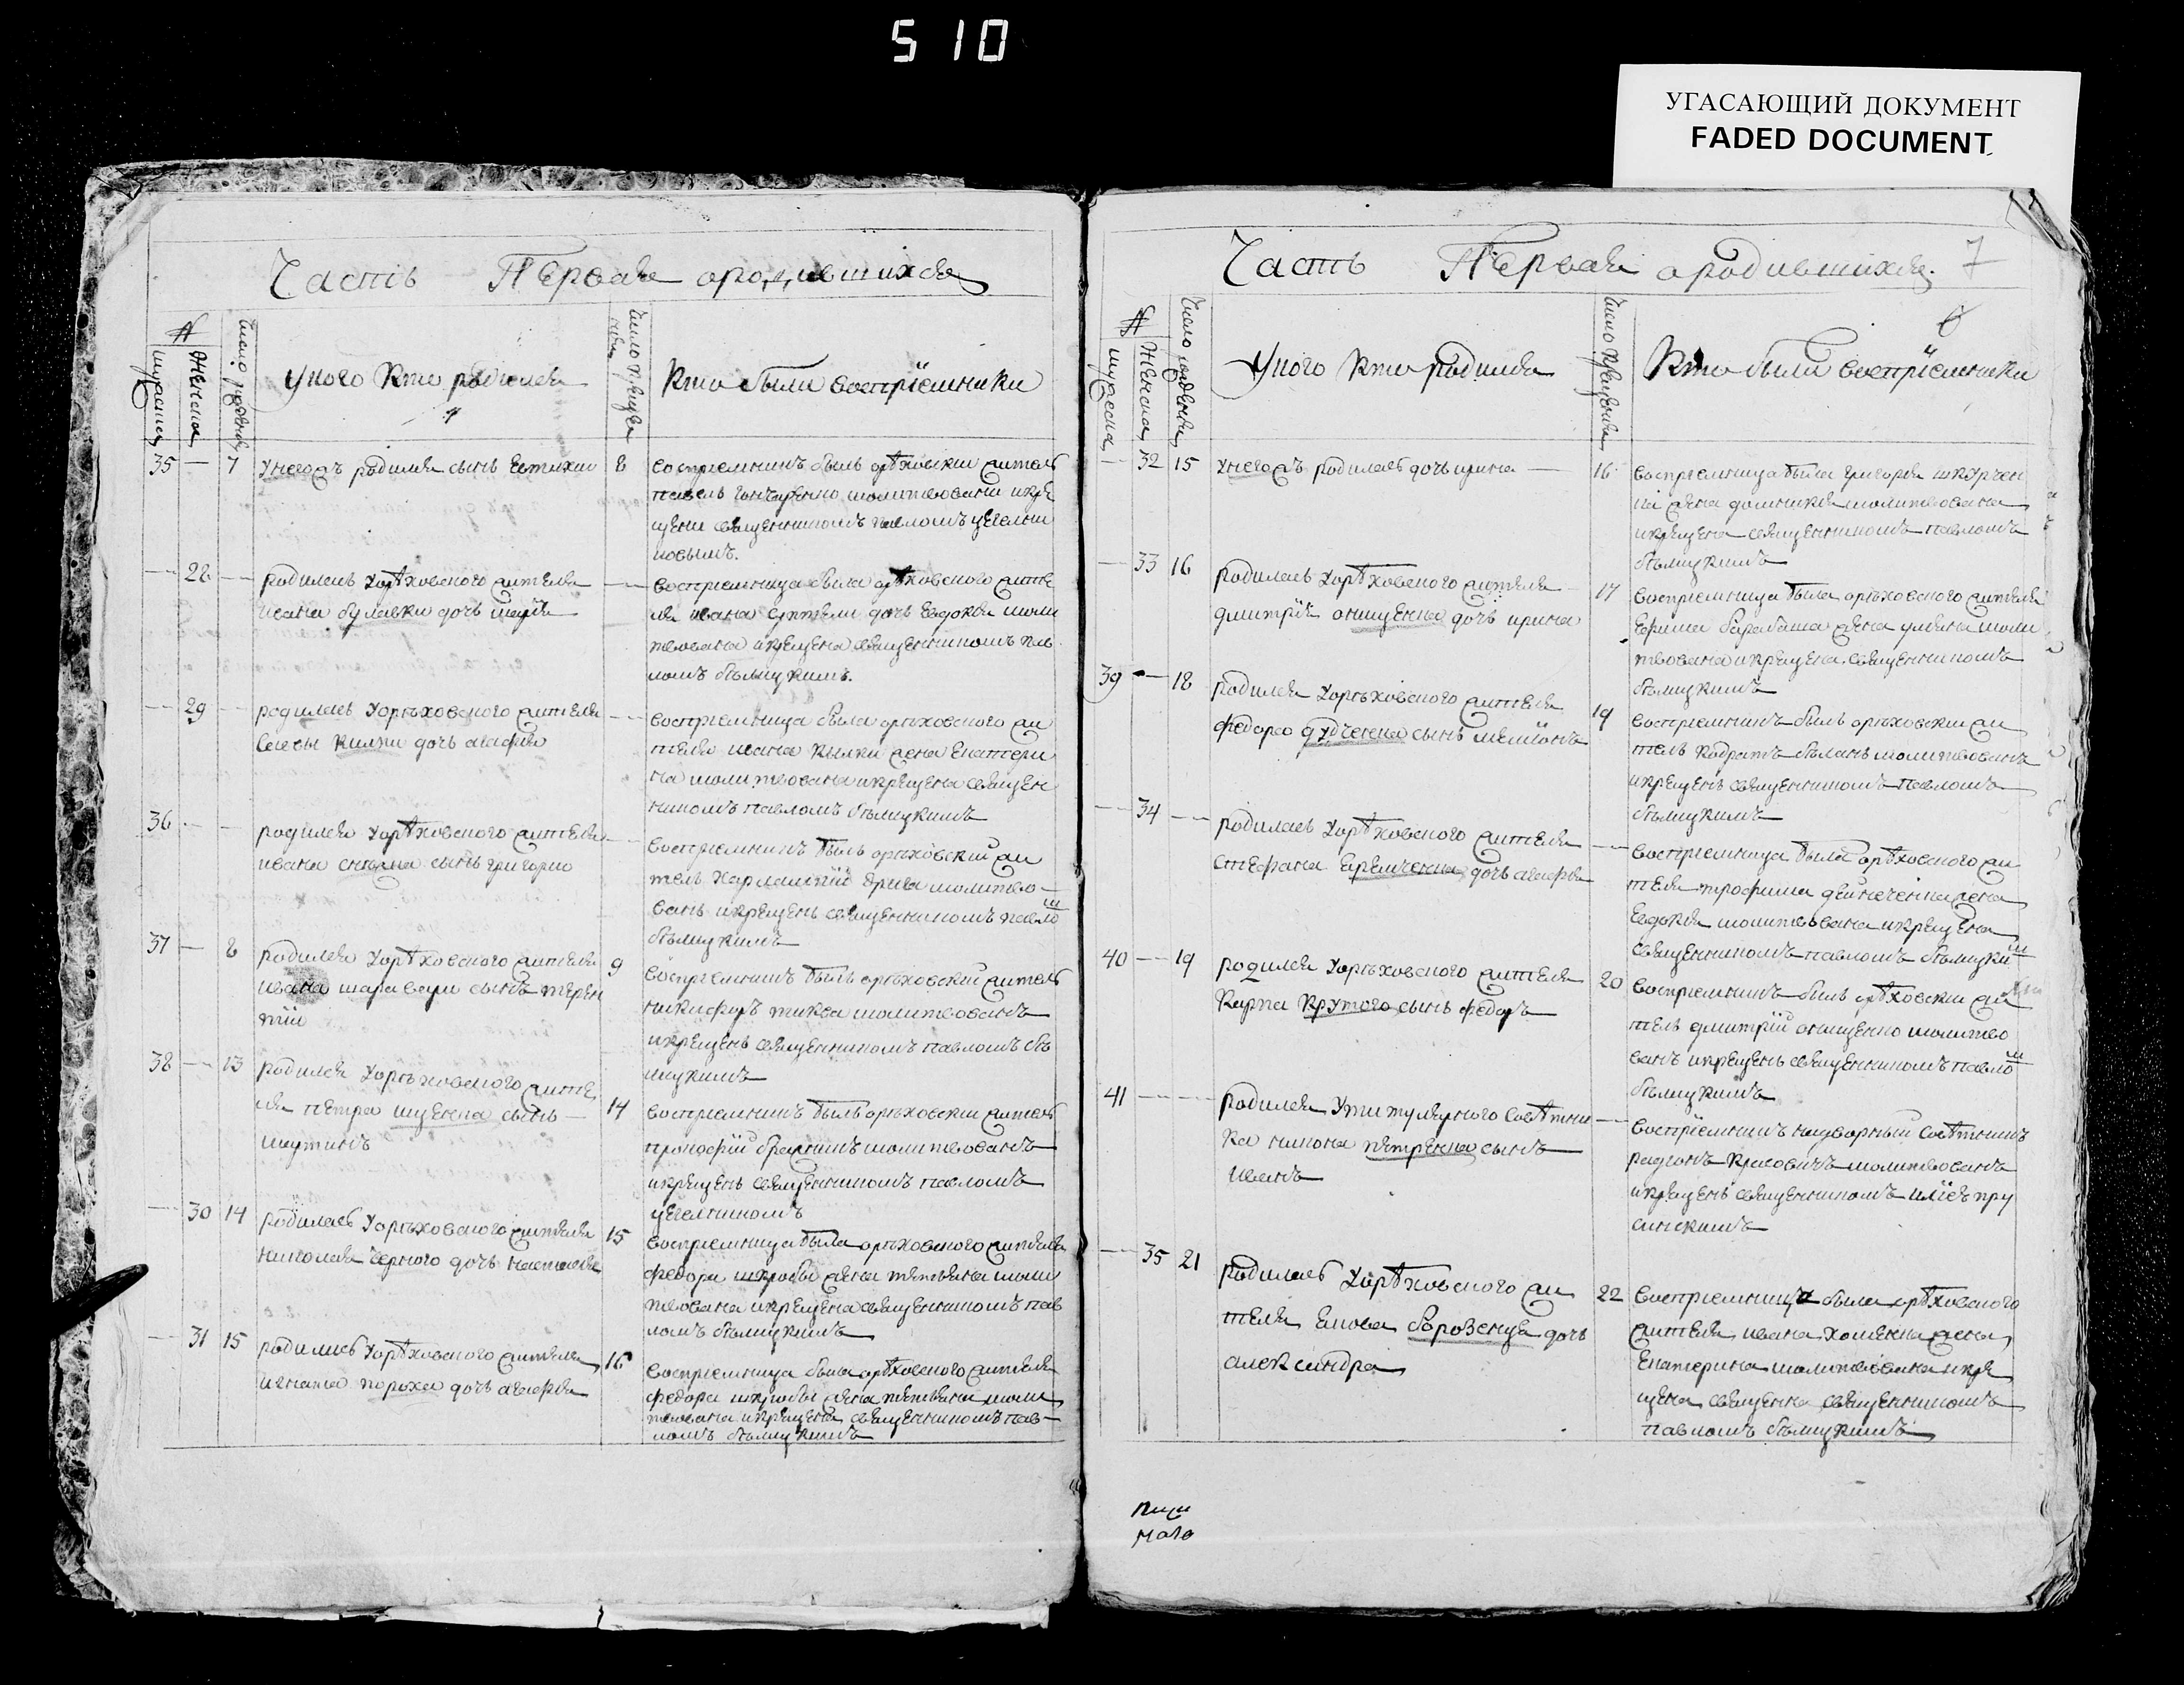 510
УГАСАЮЩИЙ ДОКУМЕНТ
FADED DOCUMENT
Часть Первая ородившихся
№
мужеска
женска
число рождения
У кого кто родился
число крещения
Кто были восприемники
35 — 7 У него ъ родился сынъ Евтихии 8
восприемникъ былъ орѣховски житель
павель молитвованъ и кре
щенъ священникомъ павломъ

— 28 — родилась У орѣховского жителя
ивана булавки дочь марїя
восприемница была орѣховского жите
ля ивана дочь Евдокия моли
твована и крещена священникомъ пав
ломъ бѣлицкимъ.
— 29 — родилась У орѣховского жителя
савы килки дочь агафия
восприемница была орѣховского жи
теля ивана килки жена Екатери
на молитвована и крещена священ
никомъ павломъ бѣлицкимъ
36 — — родился У орѣховского жителя
ивана сынъ григорио
восприемникъ былъ орѣховский жи
тель харлампїй молитво
ванъ и крещенъ священникомъ павло м
бѣлицкимъ
37 — 8 родился У орѣховского жителя 9
ивана шаравари сынъ терен
тїи
восприемникъ былъ орѣховский житель
никифоръ тиква молитвованъ
и крещенъ священникомъ павломъ бѣ
лицкимъ
38 — 13 родился У орѣховского жите
ля петра ищенка сынъ — 14
мартинъ
восприемникъ былъ орѣховски житель
прокофїй молитвованъ
и крещенъ священникомъ павломъ

— 30 14 родилась У орѣховского жителя 15
николая черного дочь настасия
восприемница была орѣховского жителя
федора шкробы жена татияна моли
твована и крещена священникомъ пав
ломъ бѣлицкимъ
— 31 15 родилась У орѣховского жителя 16
игната пороха дочь агафия
восприемница была орѣховского жителя
федора шкробы жена татияна моли
твована и крещена священникомъ пав
ломъ бѣлицкимъ
Часть Первая ородившихся. 7
6
№
мужеска
женска
число рождения
У кого кто родился
число крещения
Кто были восприемники
— 32 15 У него ъ родилась дочь ирина — 16
восприемница была григория шкурчен
ка жена домникия молитвована
и крещена священникомъ павломъ
бѣлицкимъ
— 33 16 родилась У орѣховского жителя
дмитрїя онищенка дочь ирина 17
восприемница была орѣховского жителя
Ефима барабаша жена улияна моли
твована и крещена священникомъ
бѣлицкимъ
39 — 18 родился У орѣховского жителя
федора дудченка сынъ симїонъ 19
восприемникъ былъ орѣховски жи
тель кодратъ бѣланъ молитвованъ
и крещенъ священникомъ павломъ
бѣлицкимъ
— 34 — родилась У орѣховского жителя
стефана Яременка дочь агафия
восприемница была орѣховского жи
теля трофима дейнеченка жена
Евдокия молитвована и крещена
священникомъ павломъ бѣлицки м
40 — 19 родился У орѣховского жителя 20
карпа крутого сынъ федоръ
восприемникъ былъ орѣховски жи
тель дмитрїй онищенко молитво
ванъ и крещенъ священникомъ павло м
бѣлицкимъ
41 — — родился У титулярного совѣтни
ка никона петренка сынъ
иванъ
восприемникъ надворный совѣтникъ
радионъ красовичъ молитвованъ
и крещенъ священникомъ илїею пру

— 35 21 родилась У орѣховского жи 22
теля якова борозенца дочь
александра
восприемница была орѣховского
жителя ивана хоменка жена
Екатерина молитвована и кре
щена священна священникомъ
павломъ бѣлицкимъ